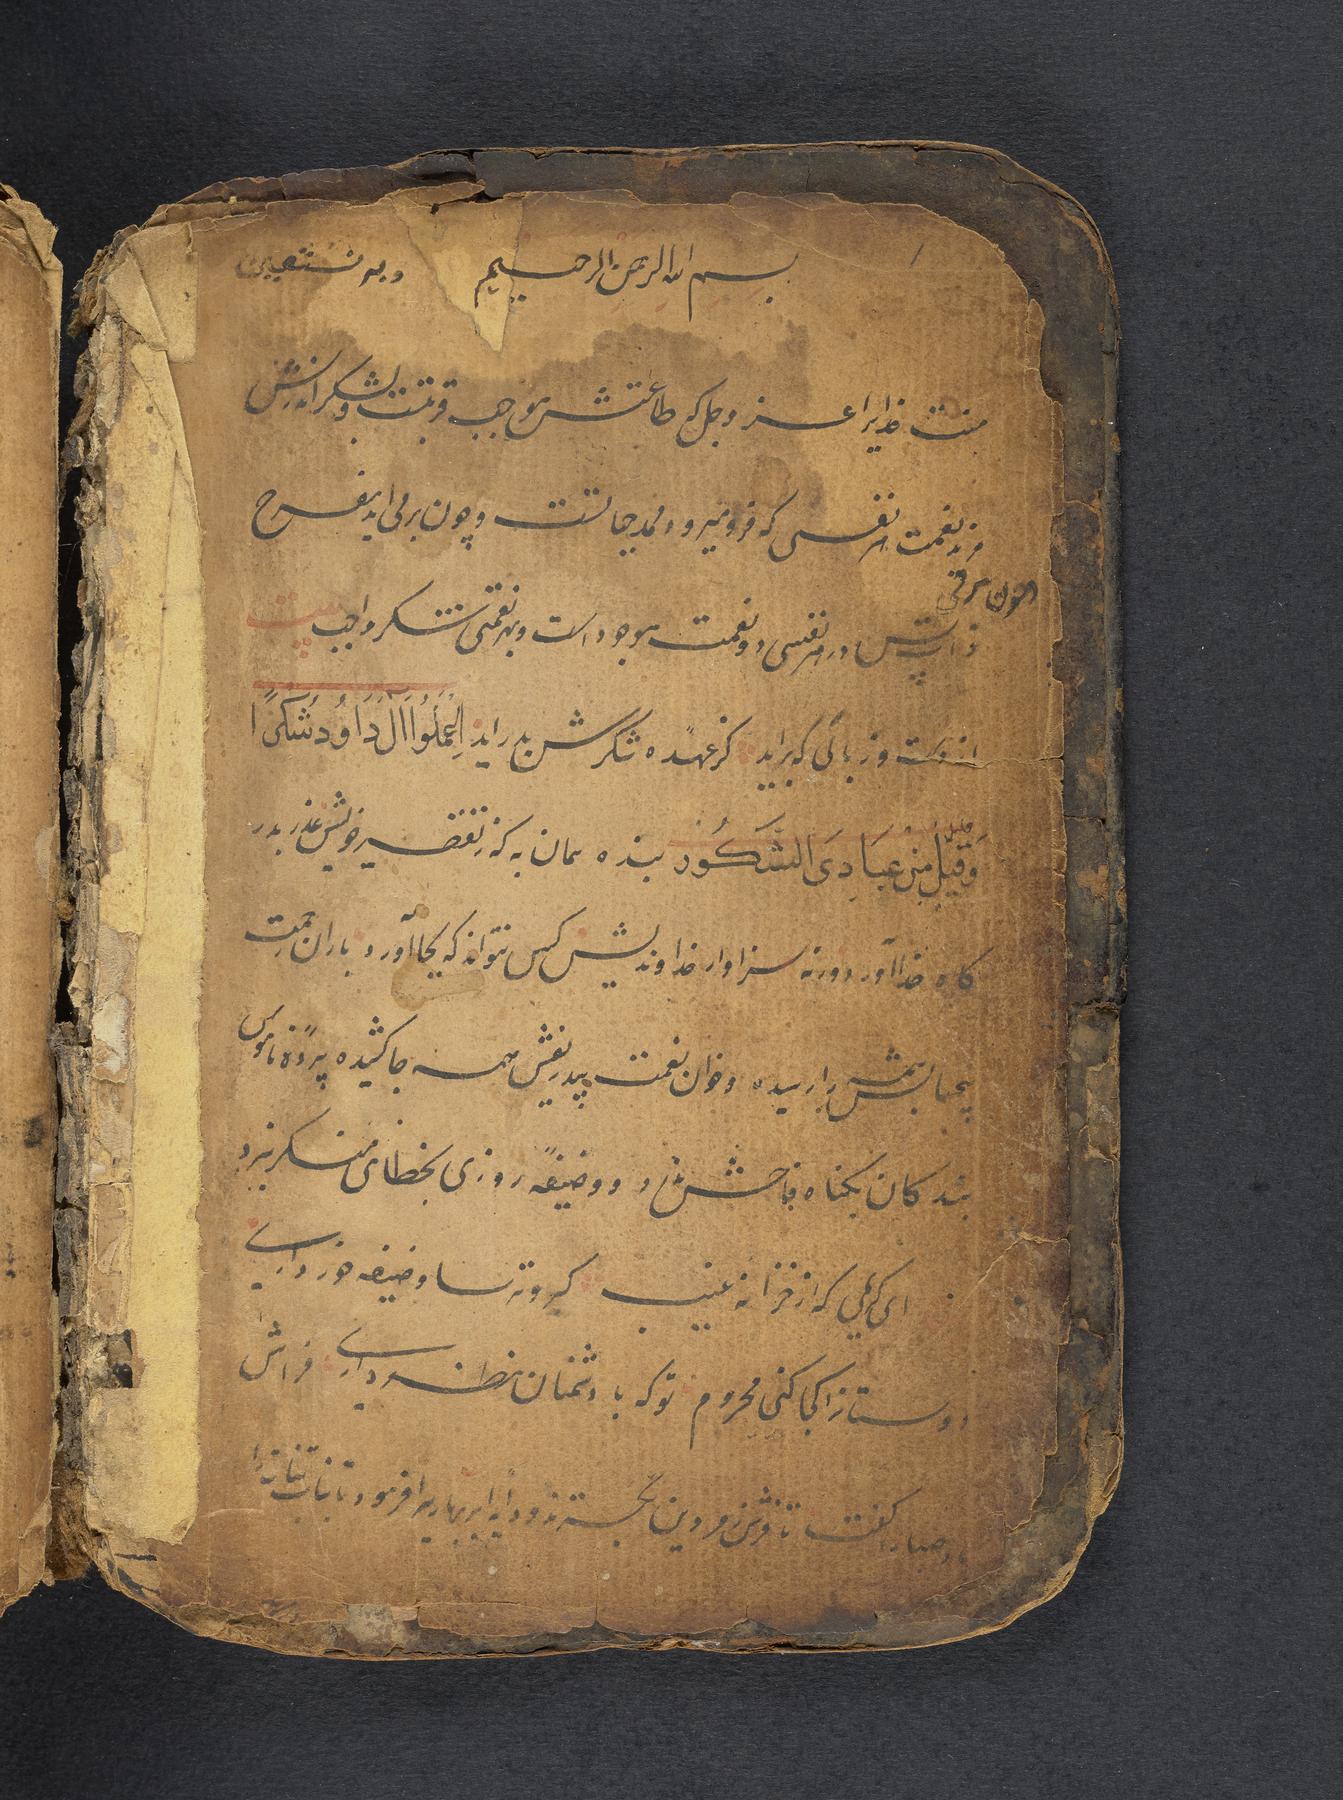 بسم الله الرحمن الرحیم وبه نستعین
منت خدایرا عز وجل که طاعتش موجب قربتست وبشکر اندرش
مزید نعمت هر نفسی که فرو میرود ممد حیاتست وچون برمی اید مفرح
چون برقی
ذات پس در هر نفسی دو نعمت موجود است وبهر نعمتی شکر واجب بیت
از دست و زبانی که براید کز عهده شکرش بدر اید اِعمَلُوا آلَ دَاوُدَ شُکرًا
وَقَلِیلٌ مِن عِبَادِیَ الشَّکُور بنده همان به که ز تقصیر خویش عذر بدر
کاه خدا آورد ورنه سزاوار خداوندیش کس نتواند که بجا آورد باران رحمت
بیحسابش همه را رسیده وخوان نعمت بیدریغش همه جا کشیده پردهٔ ناموس
بندکان بکناه فاحش ندرد و وضیفهٔ روزی بخطای منکر نبرد
ای کریمی که از خزانه غیب کبر وترسا وضیفه خور داری
دوستانرا کجا کنی محروم تو که با دشمنان نظر داری فراش
باد صبا را کفت تا فرش زمردین بکسترد ودایه ابر بهاریرا فرمود تا بنات نباترا